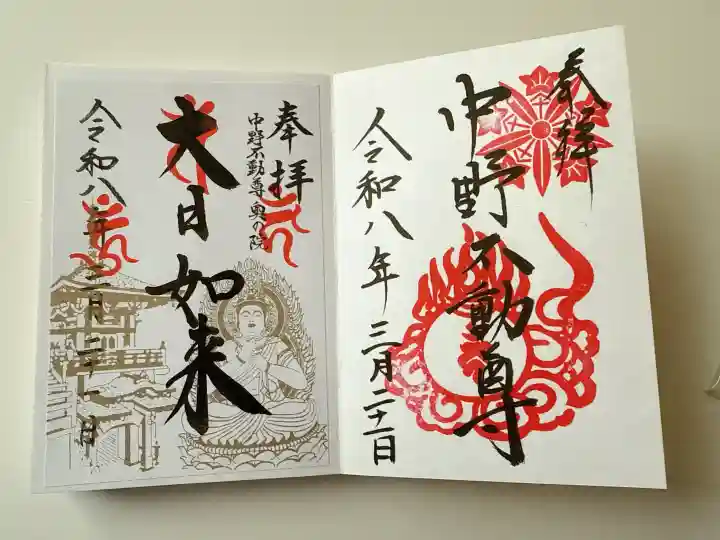 奉拝
中野不動尊
令和八年 三月二十一日
奉拝
中野不動尊 奥の院
大日如来
令和八年 三月二十一日